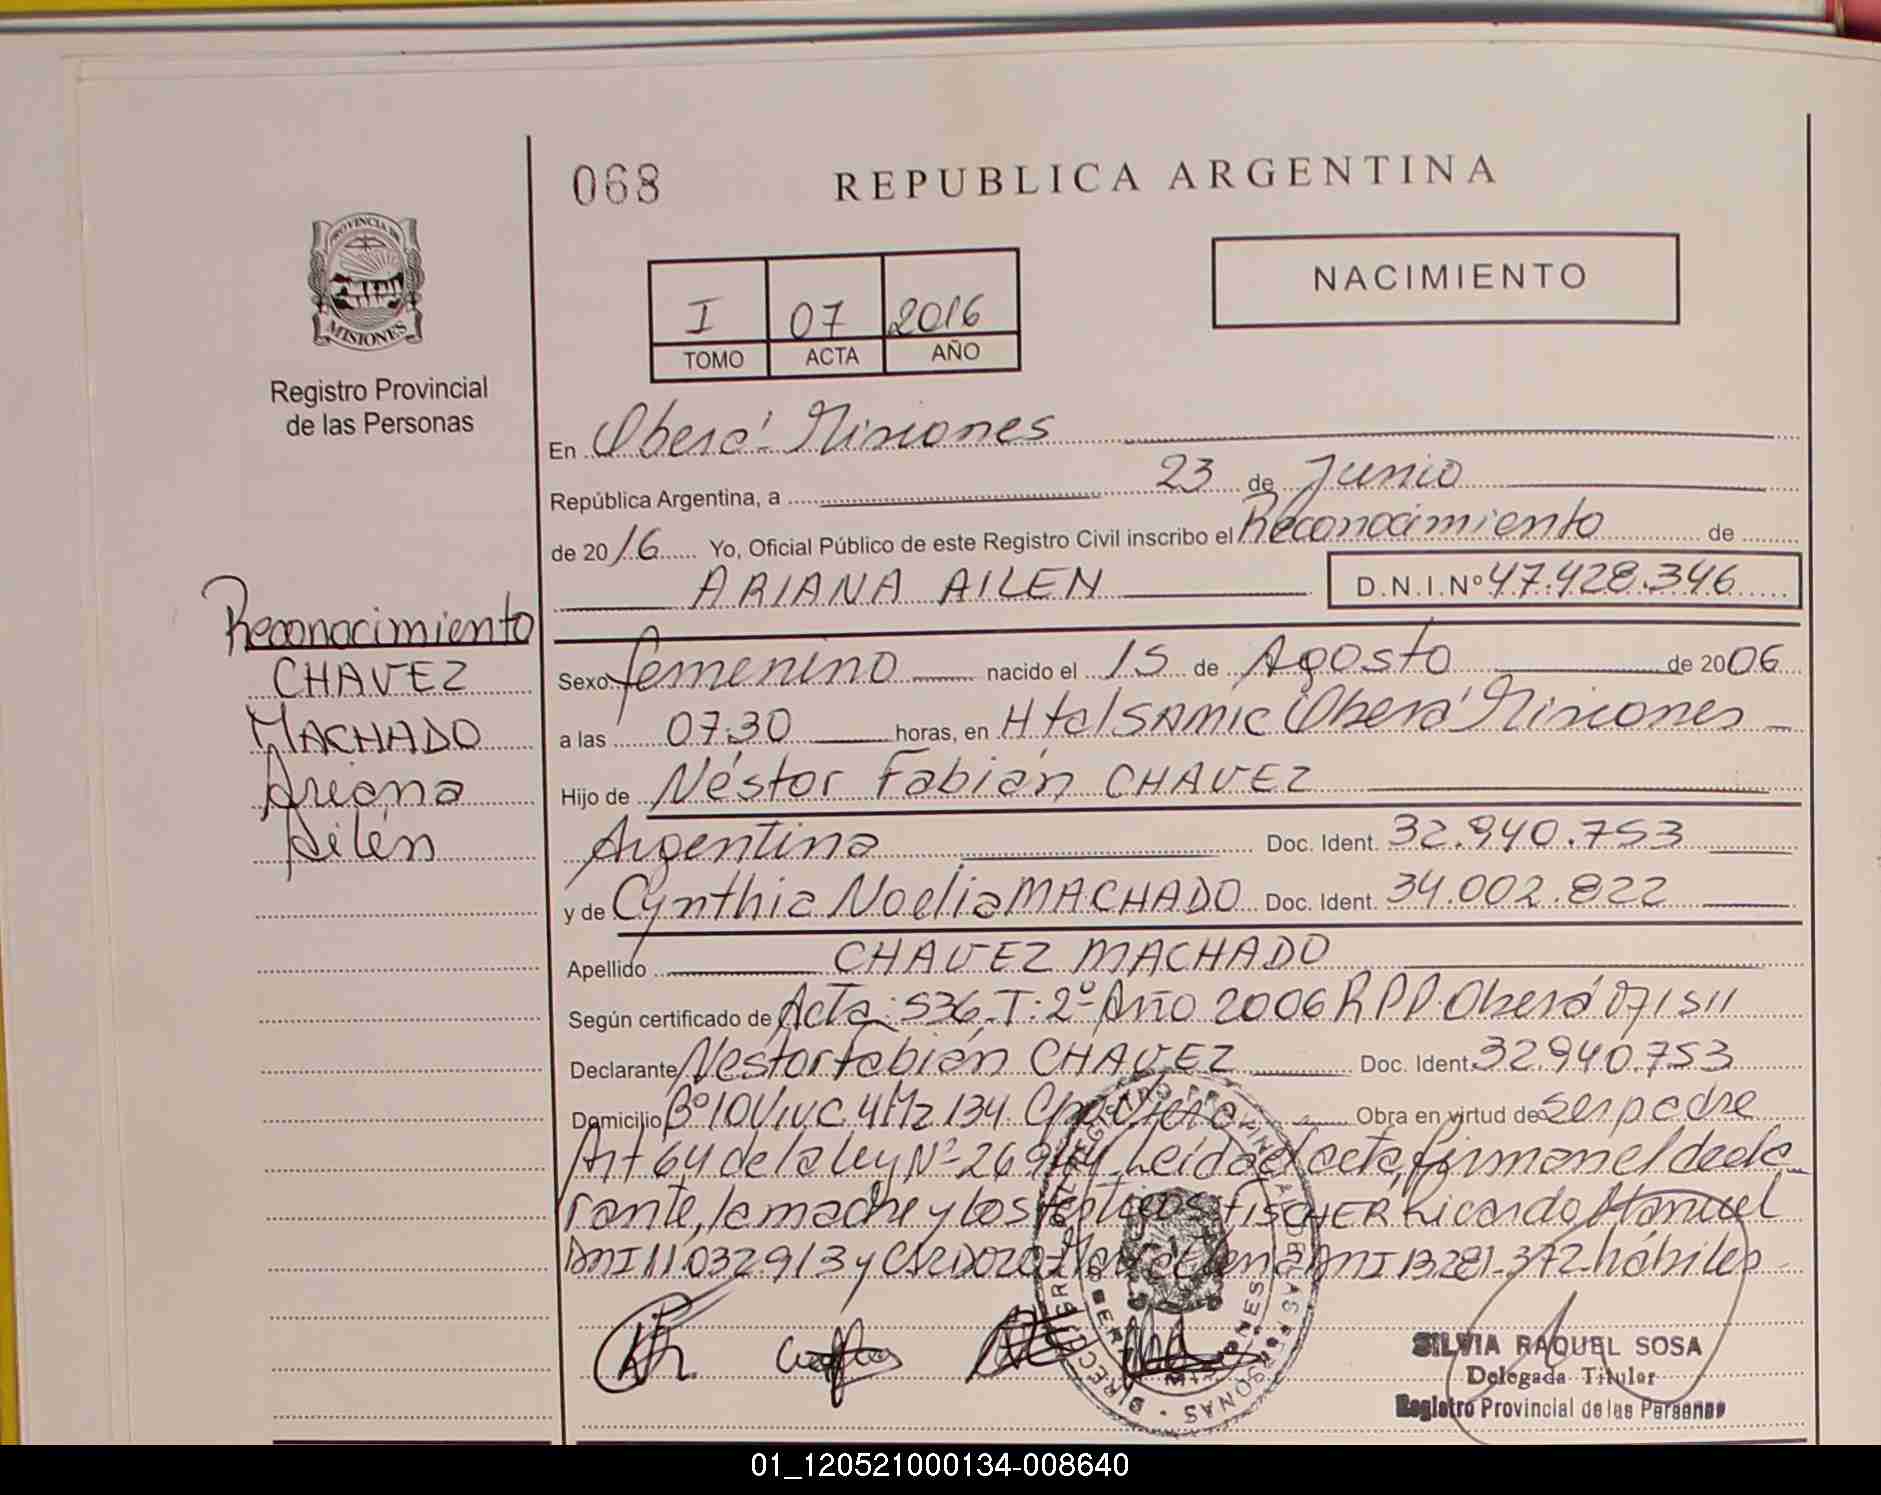 068
REPUBLICA ARGENTINA
PROVINCIA DE
MISIONES
Registro Provincial
de las Personas
I 07 2016
TOMO ACTA AÑO
NACIMIENTO
En Oberá Misiones
República Argentina, a 23 de Junio
de 2016 Yo, Oficial Público de este Registro Civil inscribo el Reconocimiento de
ARIANA AILEN D.N.I.Nº 47.428.346
Reconocimiento
CHAVEZ
MACHADO
Ariana
Ailén
Sexo femenino nacido el 15 de Agosto de 2006
a las 07:30 horas, en Htal SAMIC Oberá Misiones
Hijo de Néstor Fabián CHAVEZ
Argentina Doc. Ident. 32.940.753
y de Cynthia Noelia MACHADO Doc. Ident. 34.002.822
Apellido CHAVEZ MACHADO
Según certificado de Acta: 536 T: 2º Año 2006 RPP. Oberá 071511
Declarante Néstor Fabián CHAVEZ Doc. Ident. 32.940.753
Domicilio Bº 10 Viv C. 4 Mz 134 Obra en virtud de Ser padre
Art 64 de la ley Nº 26944 Leída el acta, firman el decla
rante, la madre y los testigos FISCHER Ricardo Manuel
DNI 11.032913 y DNI 13.281.372 hábiles
SILVIA RAQUEL SOSA
Delegada Titular
Registro Provincial de las Personas
01_120521000134-008640